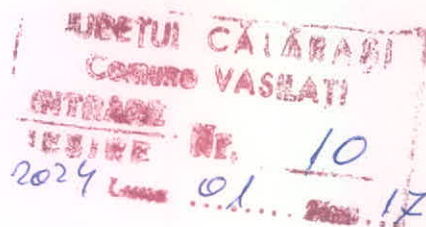 JUDETUL CĂLĂRAȘI
Comuna VASILAȚI
INTRARE
IESIRE Nr. 10
2024 Luna 01 Ziua 17